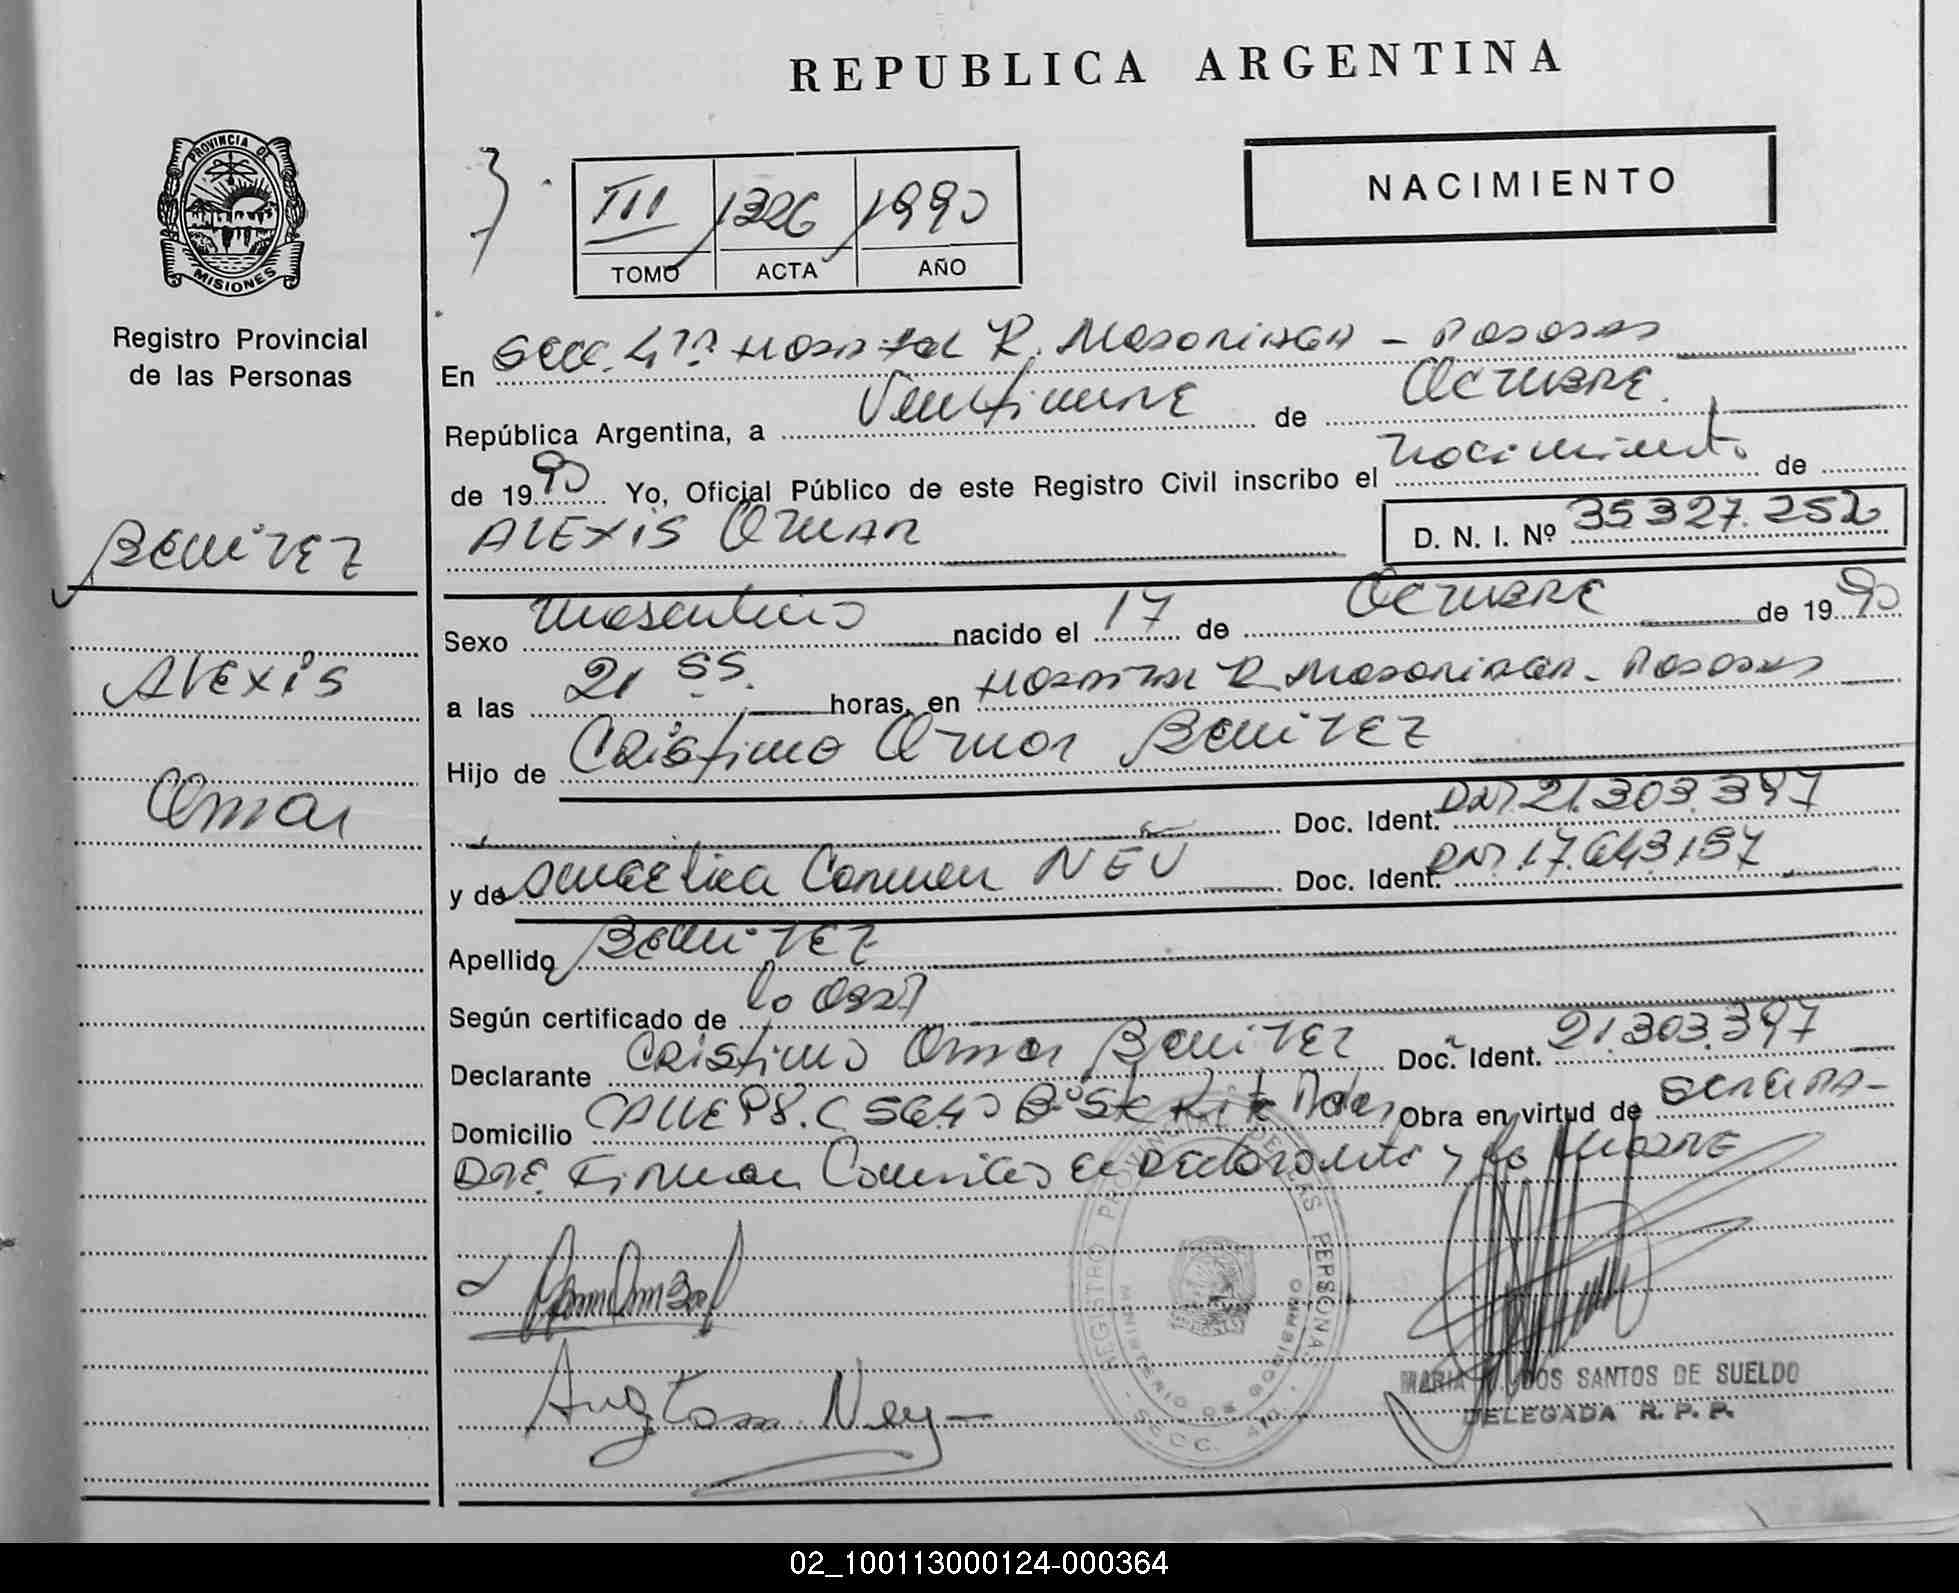 REPUBLICA ARGENTINA
PROVINCIA DE
MISIONES
Registro Provincial
de las Personas
III 1326 1990
TOMO ACTA AÑO
NACIMIENTO
En Secc. 4ta Hospital R. Madariaga - Posadas
República Argentina, a Veintinueve de Octubre
de 1990 Yo, Oficial Público de este Registro Civil inscribo el nacimiento de
ALEXIS OMAR
D. N. I. Nº 35327.252
BENITEZ
ALEXIS
Omar
Sexo masculino nacido el 17 de Octubre de 1990
a las 21 55 horas, en Hospital R Madariaga - Posadas
Hijo de Cristino Omar BENITEZ
Doc. Ident. DNI 21.303.397
y de Angelica Carmen NEU Doc. Ident. DNI 17.643.157
Apellido BENITEZ
Según certificado de lo
Declarante Cristino Omar BENITEZ Doc. Ident. 21.303.397
Domicilio CALLE 98. C 5640 Bº Sta Rita Pdas Obra en virtud de ser el PA-
DRE. Firman Conmigo el Declarante y la MADRE
REGISTRO PROVINCIAL DE LAS PERSONAS
MINISTERIO DE GOBIERNO
SECC. 4TA
Ney
MARIA DOS SANTOS DE SUELDO
DELEGADA R. P. P.
02_100113000124-000364